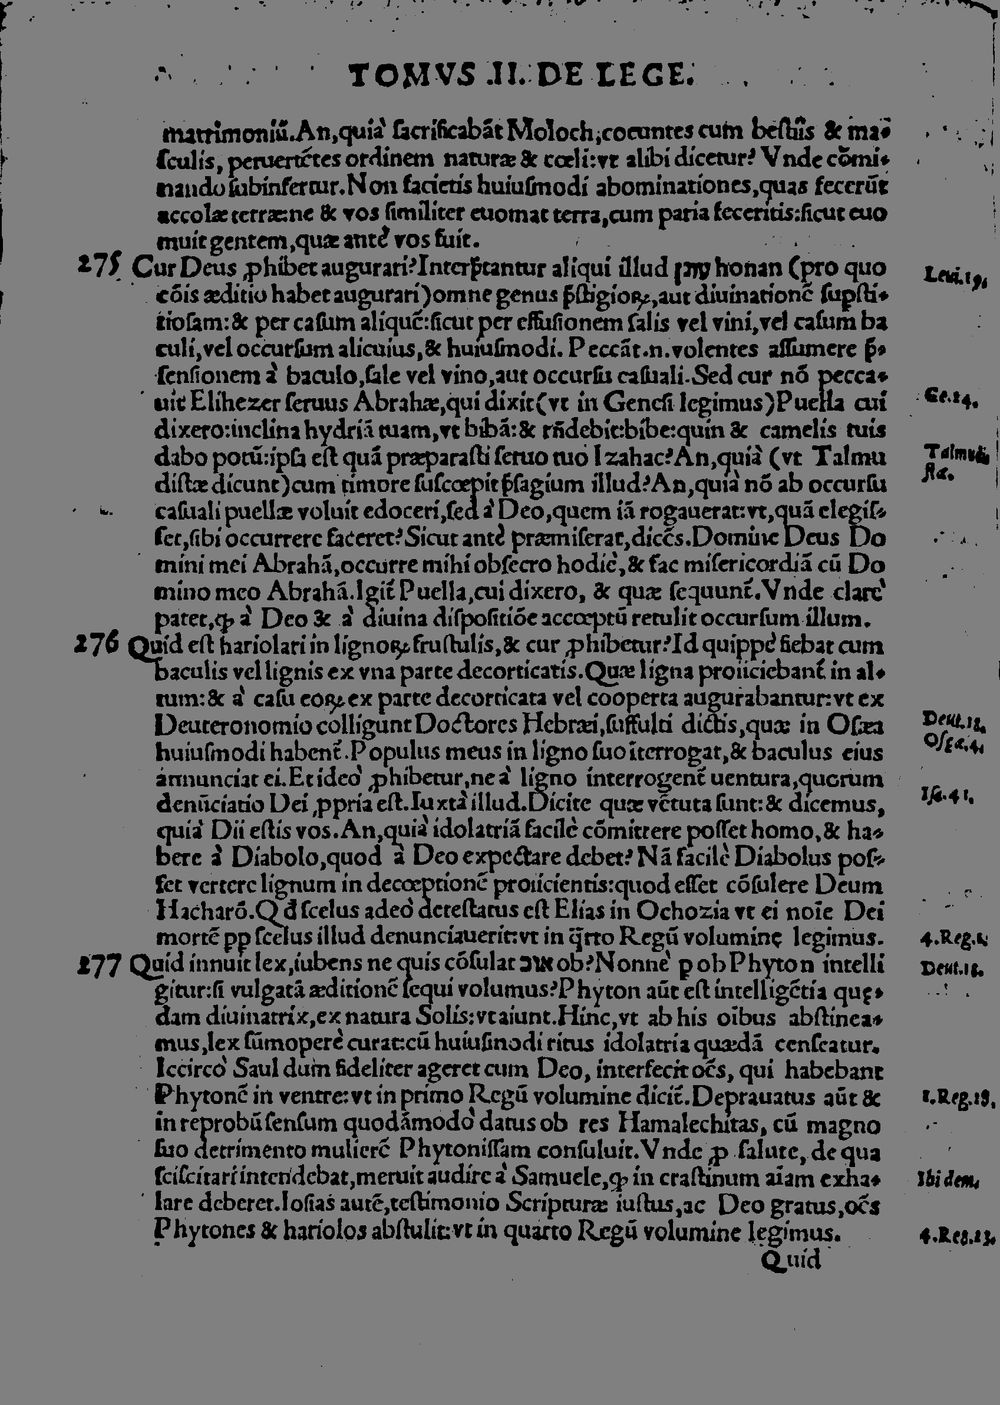 TOMVS .II. DE LEGE.
matrimoniū.An,quià sacrificabāt Moloch,coeuntes cum bestiis & ma-
sculis, peruertētes ordinem naturæ & cœli:vt alibi dicetur? Vnde cōmi-
nando subinfertur.Non facietis huiusmodi abominationes,quas fecerūt
accolæ terræ:ne & vos similiter euomat terra,cum paria feceritis:sicut euo
muit gentem,quæ antè vos fuit.
275 Cur Deus ꝓhibet augurari?Interp̄tantur aliqui illud honan (pro quo
Leui.19.
cōis æditio habet augurari)omne genus p̄stigioꝝ,aut diuinationē supsti-
tiosam:& per casum aliquē:sicut per effusionem salis vel vini,vel casum ba
culi,vel occursum alicuius,& huiusmodi. Peccāt.n.volentes assumere p̄-
sensionem à baculo,sale vel vino,aut occursu casuali.Sed cur nō pecca-
uit Elihezer seruus Abrahæ,qui dixit(vt in Genesi legimus)Puella cui
Ge.24.
dixero:inclina hydriā tuam,vt bibā:& rn̄debit:bibe:quin & camelis tuis
dabo potū:ipsa est quā præparasti seruo tuo Izahac?An,quià (vt Talmu
Talmudi
stæ.
distæ dicunt)cum timore suscœpit p̄sagium illud?An,quià nō ab occursu
casuali puellæ voluit edoceri,sed à Deo,quem iā rogauerat:vt,quā elegis-
set,sibi occurrere faceret?Sicut antè præmiserat,dicēs.Domine Deus Do
mini mei Abrahā,occurre mihi obsecro hodiè,& fac misericordiā cū Do
mino meo Abrahā.Igit̄ Puella,cui dixero, & quæ sequunt̄.Vnde clarè
patet,ꝙ à Deo & à diuina dispositiōe accœptū retulit occursum illum.
276 Quid est hariolari in lignoꝝ frustulis,& cur ꝓhibetur?Id quippè fiebat cum
baculis vel lignis ex vna parte decorticatis.Quæ ligna proiiciebant̄ in al-
tum:& à casu eoꝝ ex parte decorticata vel cooperta augurabantur:vt ex
Deuteronomio colligunt Doctores Hebræi,suffulti dictis,quæ in Osæa
Deut.18.
Osęæ.4.
huiusmodi habent̄.Populus meus in ligno suo īterrogat,& baculus eius
annunciat ei.Et ideò ꝓhibetur,ne à ligno interrogent̄ uentura,quorum
denūciatio Dei ꝓpria est.Iuxtà illud.Dicite quæ vētuta sunt:& dicemus,
Isa.41.
quià Dii estis vos.An,quià idolatriā facilè cōmittere posset homo,& ha-
bere à Diabolo,quod à Deo expectare debet? Nā facilè Diabolus pos-
set vertere lignum in decœptionē proiicientis:quod esset cōsulere Deum
Hacharō.Qd̄ scelus adeò detestatus est Elias in Ochozia vt ei noīe Dei
mortē ꝓp scelus illud denunciauerit:vt in q̄rto Regū voluminę legimus.
4.Reg.1.
277 Quid innuit lex,iubens ne quis cōsulat אוב ob?Nonnè ꝑ ob Phyton intelli
Deut.18.
gitur:si vulgatā æditionē sequi volumus?Phyton aūt est intelligētia quę-
dam diuinatrix,ex natura Solis:vt aiunt.Hinc,vt ab his oībus abstinea-
mus,lex sūmoperè curat:cū huiusmodi ritus idolatria quædā censeatur.
Iccircò Saul dum fideliter ageret cum Deo, interfecit oēs, qui habebant
Phytonē in ventre:vt in primo Regū volumine dicit̄.Deprauatus aūt &
1.Reg.28.
in reprobū sensum quodāmodò datus ob res Hamalechitas, cū magno
suo detrimento mulierē Phytonissam consuluit.Vnde ꝓ salute, de qua
sciscitari intendebat,meruit audire à Samuele,ꝙ in crastinum aīam exha-
Ibidem.
lare deberet.Iosias autē,testimonio Scripturæ iustus,ac Deo gratus,oēs
Phytones & hariolos abstulit:vt in quarto Regū volumine legimus.
4.Reg.23.
Quid